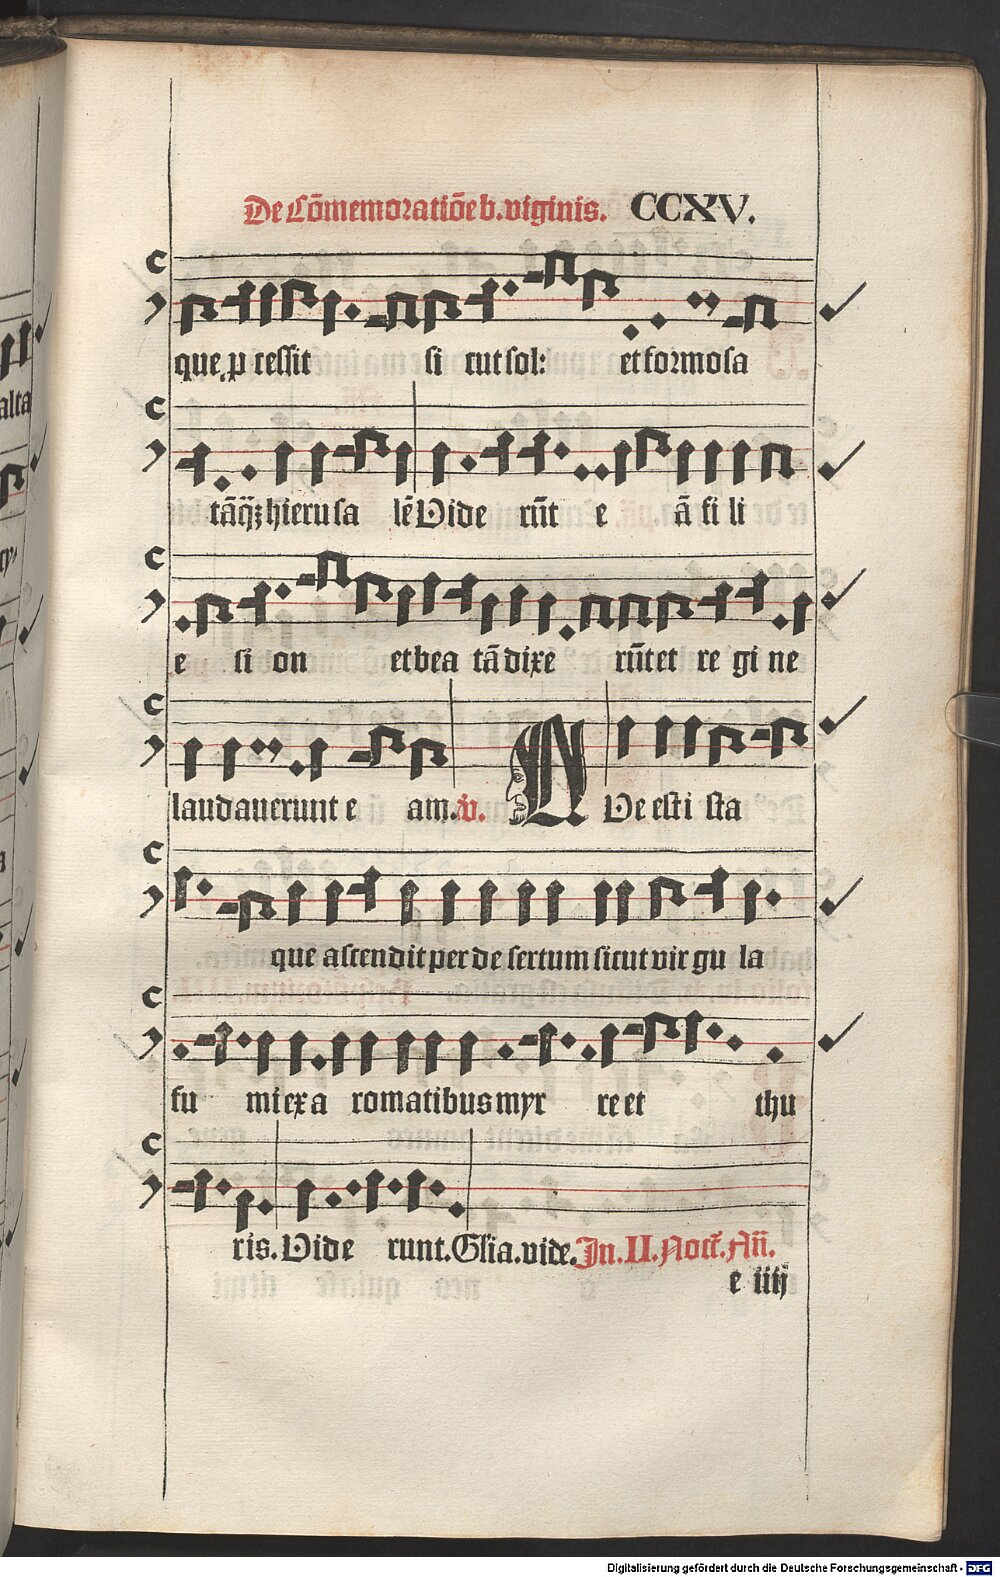 De Cōmemoratiōe b. viginis. CCXV.
que ꝓ cessit si cut sol: et formosa
tāq̄ꝫ hieru sa lē Vide rūt e ā fi li
e si on et bea tā dixe rūt et re gi ne
laudauerunt e am. v̄. Q Ve est i sta
que ascendit per de sertum sicut vir gu la
fu mi ex a romatibus myr re et thu
ris. Vide runt. Gl̄ia. vide. In. II. Noct̄. An̄.
e iiij
alta
Digitalisierung gefördert durch die Deutsche Forschungsgemeinschaft - DFG